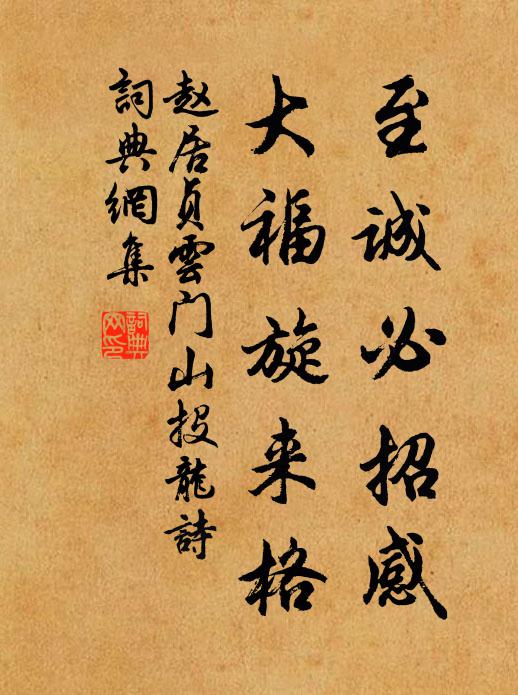 至诚必招感
大福旋来格
赵居贞雲门山投龍詩
詞典網集
詞典網印